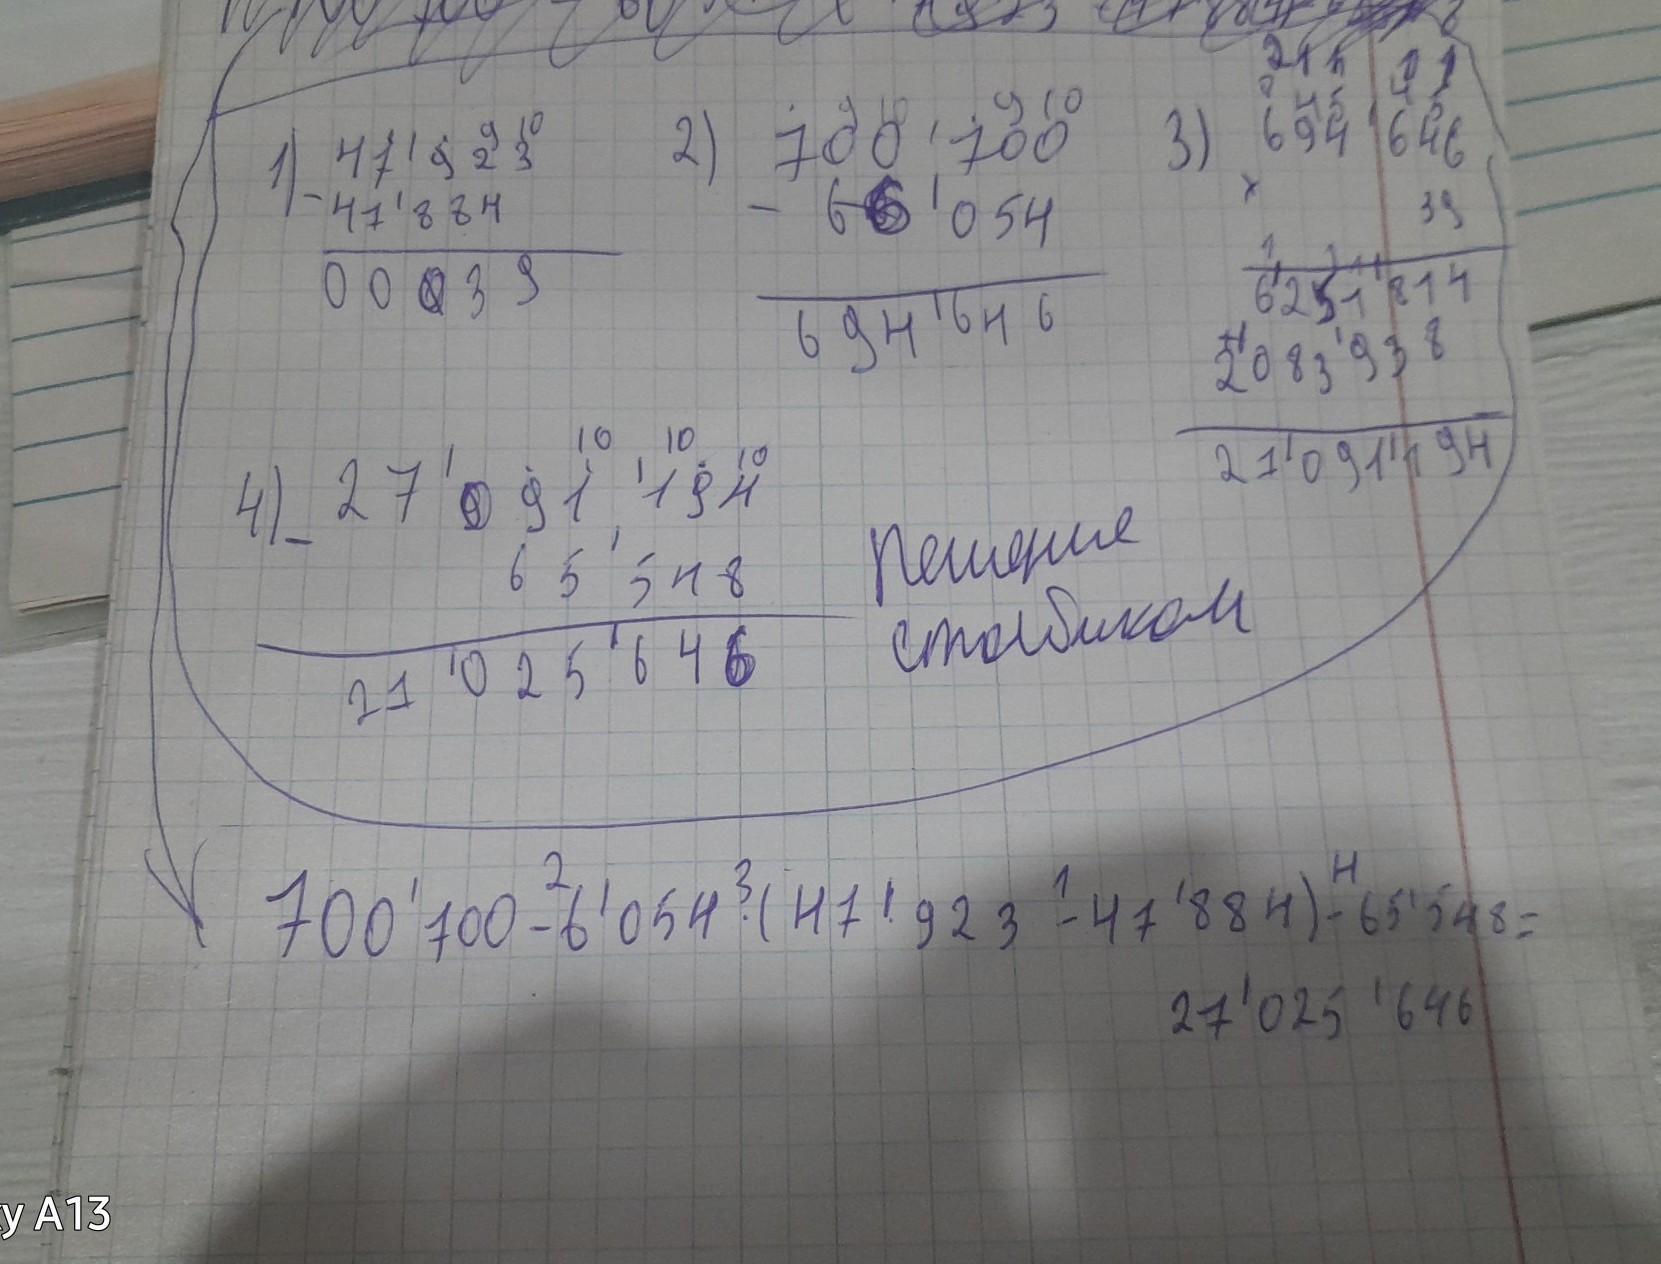 1) 47'923
- 47'884
00039
2) 700'700
- 6'054
694'646
3) 694'646
x 39
6'251'814
2'083'938
27'091'194
4) - 27'091'194
65'548
27'025'646
Решение
столбиком
700'700-6'054·(47'923-47'884)-65'548=
27'025'646
y A13